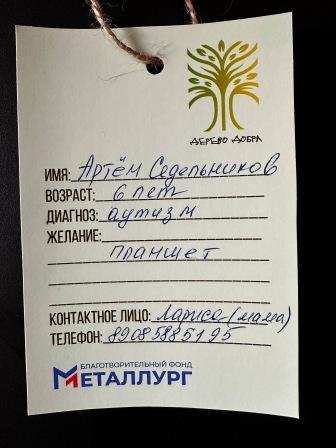 ДЕРЕВО ДОБРА
ИМЯ: Артём Седельников
ВОЗРАСТ: 6 лет
ДИАГНОЗ: аутизм
ЖЕЛАНИЕ:
планшет
КОНТАКТНОЕ ЛИЦО: Лариса (мама)
ТЕЛЕФОН: 89085885195
БЛАГОТВОРИТЕЛЬНЫЙ ФОНД
МЕТАЛЛУРГ